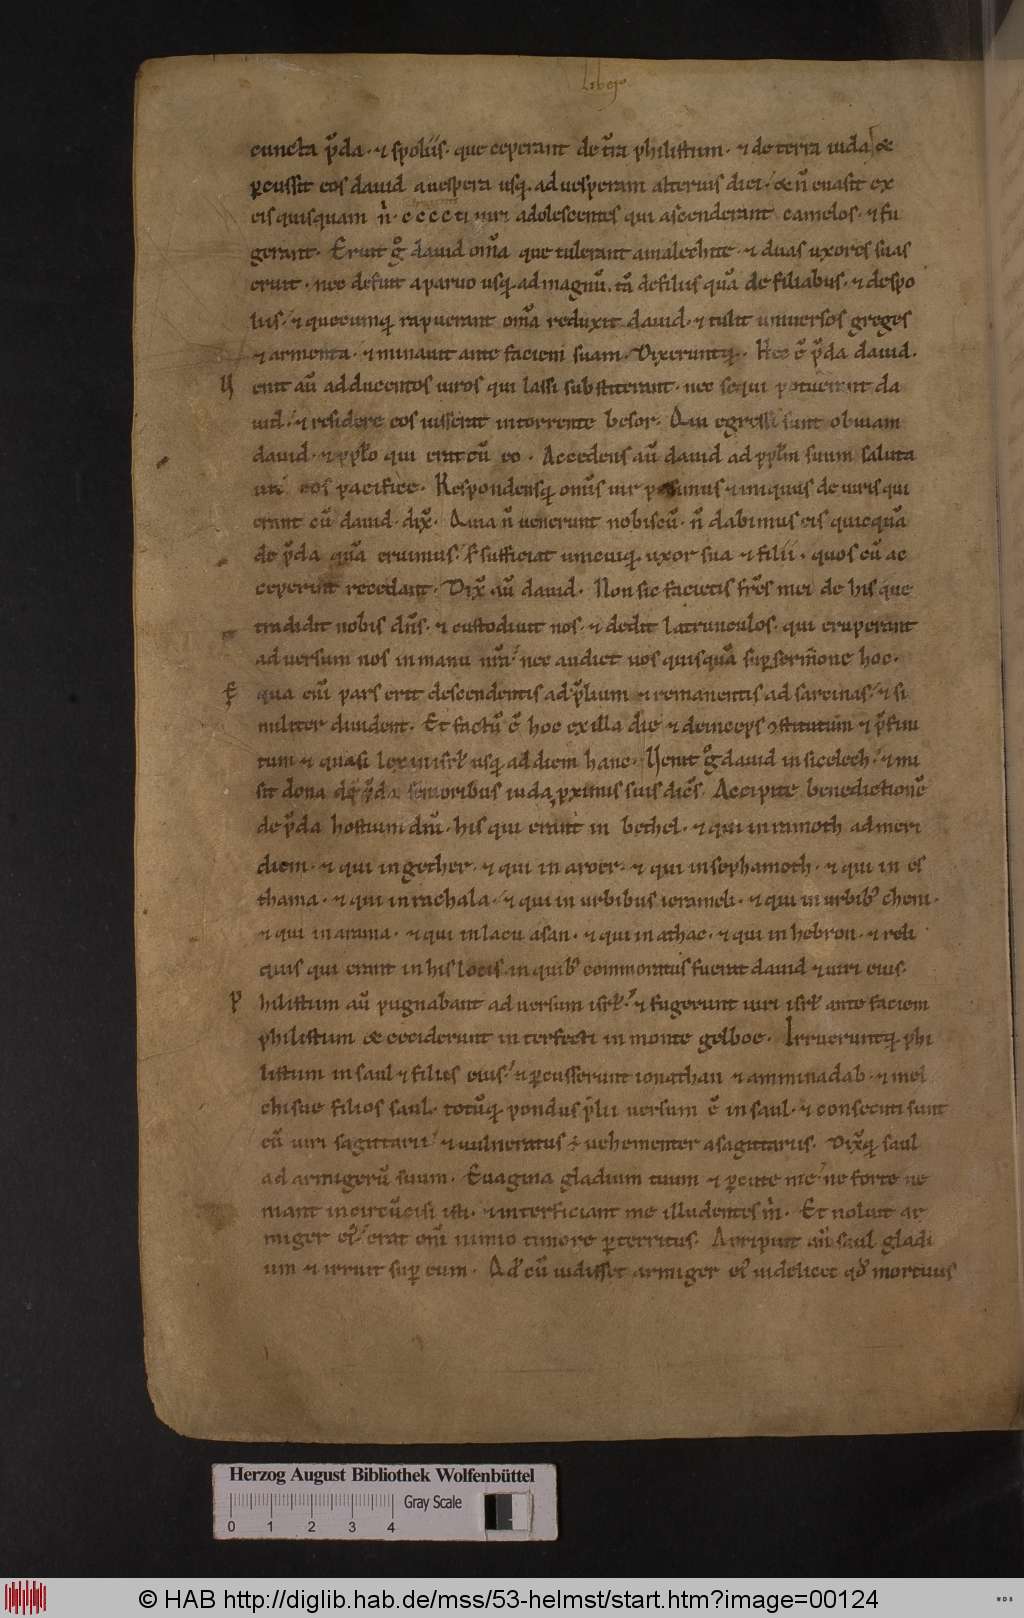 Liber
cuncta p̄da · ⁊ spoliis · que ceperant de t̄ra philistium · ⁊ de terra iuda & 
ꝑcussit eos dauid a uespera usq; ad uesperam alterius diei · & n̄ euasit ex
eis quisquam n̄ · c c c c ti uiri adolescentes qui ascenderant camelos · ⁊ fu
gerant · Eruit g̊ dauid om̄a que tulerant amalechite · ⁊ duas uxores suas
eruit · nec defuit a paruo usq; ad magnū · tā de filiis quā de filiabus · ⁊ de spo
liis · ⁊ quecumq; rapuerant om̄a reduxit dauid · ⁊ tulit uniuersos greges
⁊ armenta · ⁊ minauit ante faciem suam · Dixeruntq; · Hec ē p̄da dauid ·
V enit aū ad ducentos uiros qui lassi substiterant · nec sequi potuerant da
uid · ⁊ residere eos iusserat in torrente besor · Qui egressi sunt obuiam
dauid · ⁊ pplo qui erat cū eo · Accedens aū dauid ad pplm suum saluta
uit eos pacifice · Respondensq; omīs uir pessimus ⁊ iniquus de uiris qui
erant cū dauid · dix̄ · Quia n̄ uenerunt nobiscū · n̄ dabimus eis quicquā
de p̄da quā eruimus · s; sufficiat unicuiq; uxor sua ⁊ filii · quos cū ac
ceperint recedant · Dix̄ aū dauid · Non sic facietis fr̄s mei de his que
tradidit nobis dn̄s · ⁊ custodiuit nos · ⁊ dedit latrunculos · qui eruperant
aduersum nos in manu nr̄a · nec audiet uos quisquā suꝑ sermone hoc ·
E qua eni pars erit descendentis ad p̄lium ⁊ remanentis ad sarcinas · ⁊ si
militer diuident · Et factū ē hoc ex illa die ⁊ deinceps ꝯstitutum ⁊ p̄fini
tum ⁊ quasi lex in isrl̄ usq; ad diem hanc · Venit g̊ dauid in sicelech · ⁊ mi
sit dona de p̄da senioribus iuda ꝓximis suis dicēs · Accipite benedictionē
de p̄da hostium dn̄i · his qui erant in bethel · ⁊ qui in ramoth ad meri
diem · ⁊ qui in gether · ⁊ qui in aroer · ⁊ qui in sephamoth · ⁊ qui in es
thama · ⁊ qui in rachala · ⁊ qui in urbibus ierameli · ⁊ qui in urbib; cheni ·
⁊ qui in arama · ⁊ qui in lacu asan · ⁊ qui in athac · ⁊ qui in hebron · ⁊ reli
quis qui erant in his locis in quib; commoratus fuerat dauid ⁊ uiri eius ·
P hilistium aū pugnabant aduersum isrl̄ · ⁊ fugerunt uiri isrl̄ ante faciem
philistium & ceciderunt interfecti in monte gelboe · Irrueruntq; phi
listium in saul ⁊ filios eius · ⁊ ꝑcusserunt ionathan ⁊ amminadab · ⁊ mel
chisue filios saul · totūq; pondus p̄lii uersum ē in saul · ⁊ consecuti sunt
eū uiri sagittarii · ⁊ uulneratus ÷ uehementer a sagittariis · Dix̄q; saul
ad armigerū suum · Euagina gladium tuum ⁊ ꝑcute me · ne forte ue
niant incircūcisi isti · ⁊ interficiant me illudentes m̄ · Et noluit ar
miger ei; · erat eni nimio timore ꝑterritus · Arripuit aū saul gladi
um ⁊ irruit suꝑ eum · Qd̄ cū uidisset armiger ei; uidelicet qd̄ mortuus
Herzog August Bibliothek Wolfenbüttel
Gray Scale
0 1 2 3 4
© HAB http://diglib.hab.de/mss/53-helmst/start.htm?image=00124